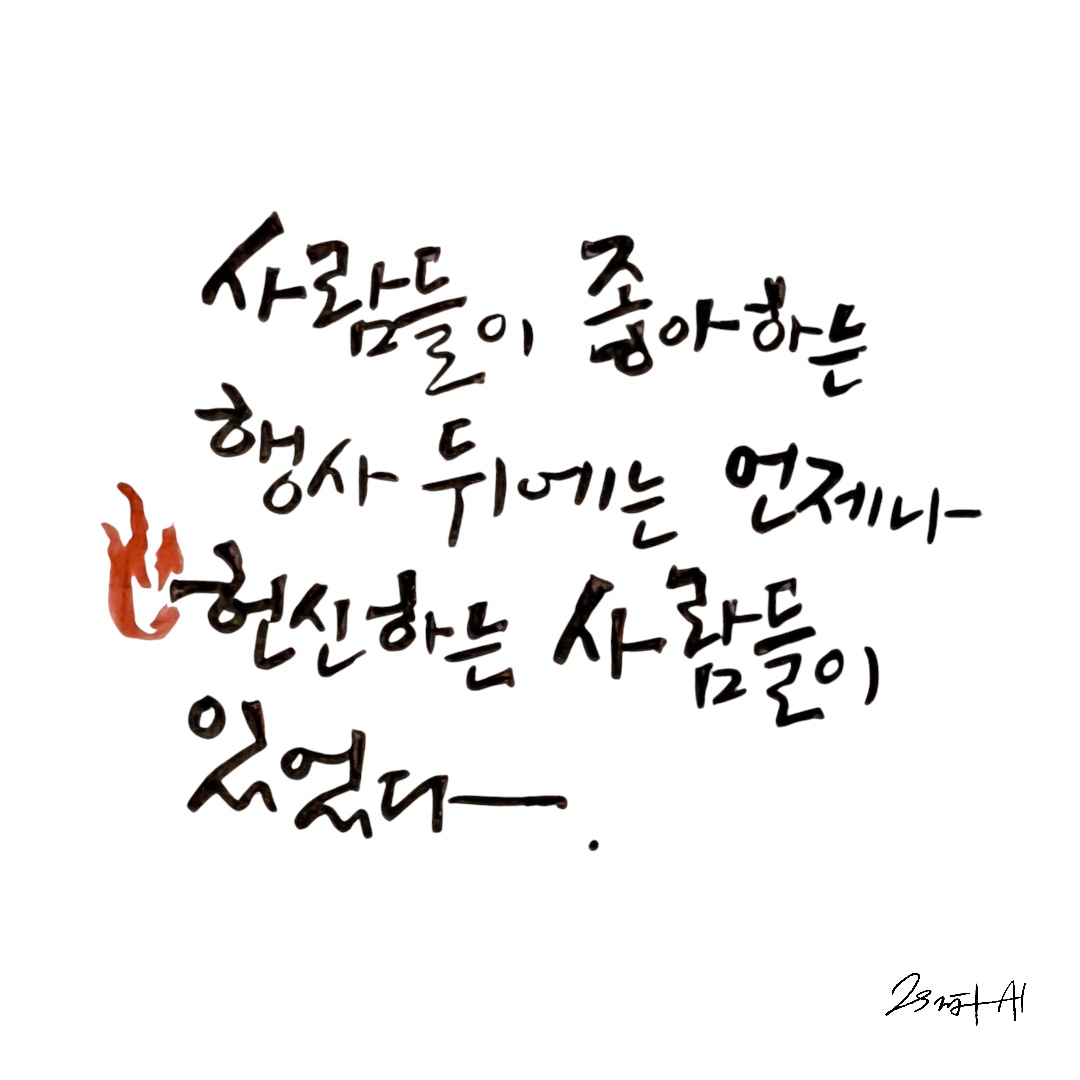 사람들이 좋아하는
행사 뒤에는 언제나
헌신하는 사람들이
있었다.